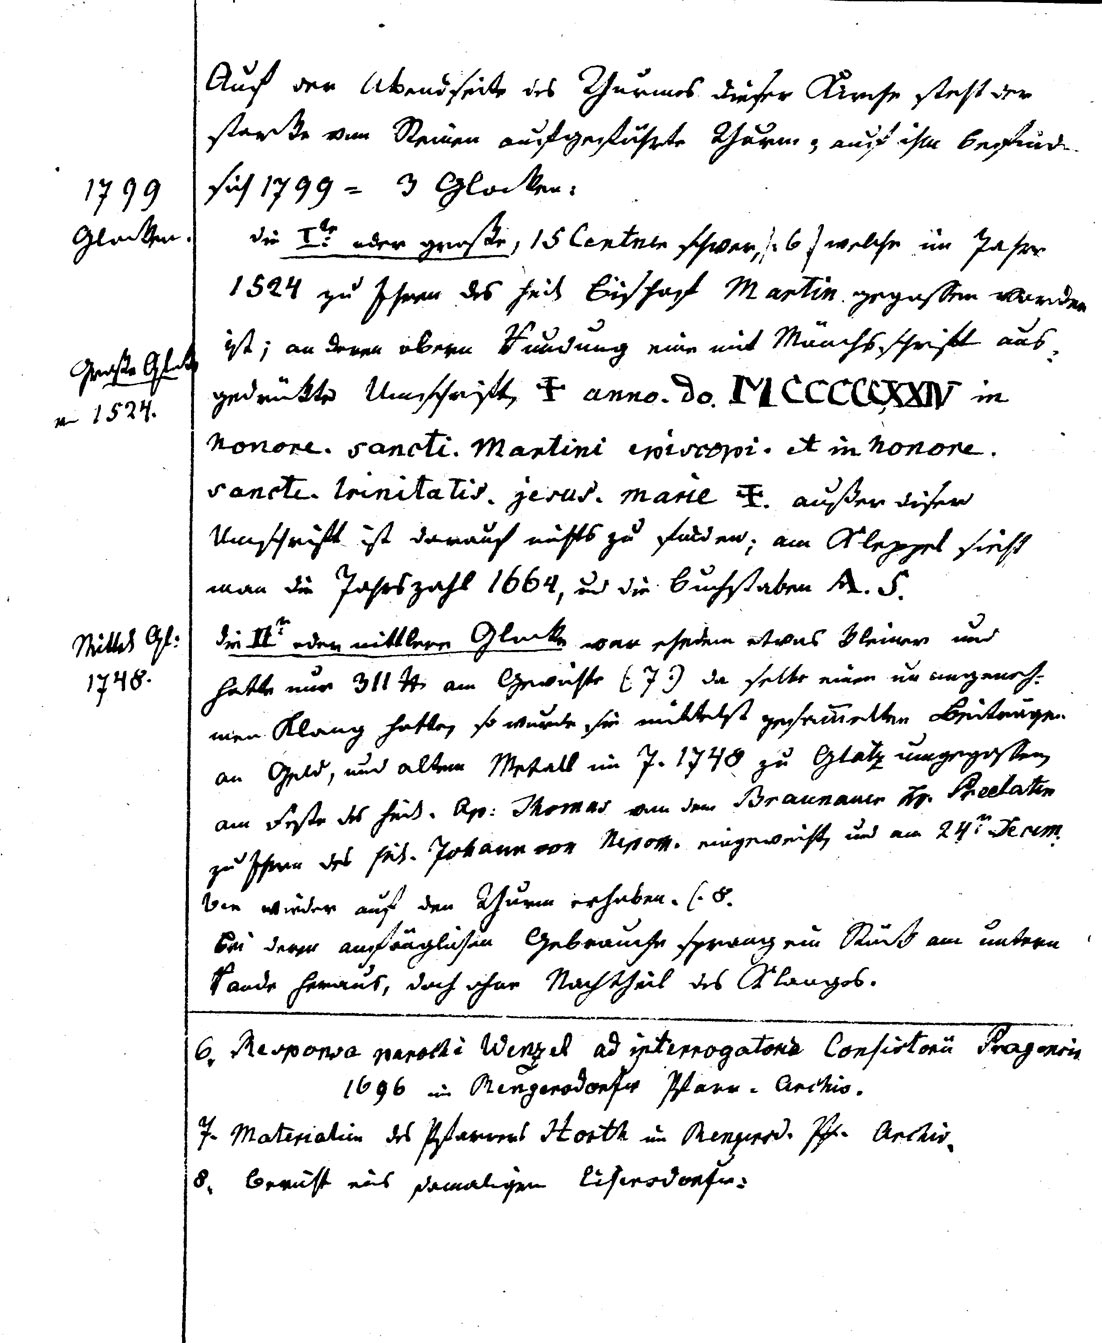 Auf der Abendseite des Thurmes dieser Kirche steht der
starke von Steinen aufgeführte Thurm; auf ihm befind
1799
sich 1799 = 3 Glocken:
Glocken.
die I.te oder große, 15 Centner schwer, /: 6 / welche im Jahr
1524 zu Ehren des heil Bischof Martin gegossen worden
Große Glock
ist; an deren obern Rundung eine mit Mönchsschrift aus,
v 1524.
gedrückte Umschrift, ☩ anno. do. MCCCCCXXIV in
honore. sancti. Martini episcopi. et in honore.
sancte. trinitatis. jesus. marie ☩. außer dieser
Umschrift ist darauf nichts zu finden; am Kleppel sieht
man die Jahrszahl 1664, und die Buchstaben A. S.
Mittel Gl:
die II.te oder mittlere Glocke war ehedem etwas kleiner und
1748.
hatte nur 311 ℔ am Gewichte (: 7 :) da selbe einen unangeneh-
men Klang hatte, so wurde sie mittelst gesammelten Beiträgen
an Geld, und altem Metall im J. 1748 zu Glatz umgegossen,
am Feste des heil. Ap: Thomas von dem Braunauer Hr. Preelaten
zu Ehren des heil. Johann von Nepom. eingeweiht, und am 24.ten Decem,
ber wieder auf den Thurm erhoben. (: 8.
bei deren anfänglichen Gebrauche sprang ein Stück am untern
Rande heraus, doch ohne Nachtheil des Klanges.
6. Responsa parochi Wenzel ad interrogatoria Consistorii Pragensis
1696 im Rengersdorfer Pfarr-Archiv.
7. Materialien des Pfarrers Horth im Rengersd. Pf. Archiv.
8. Bericht eines damaligen Eisersdorfer: